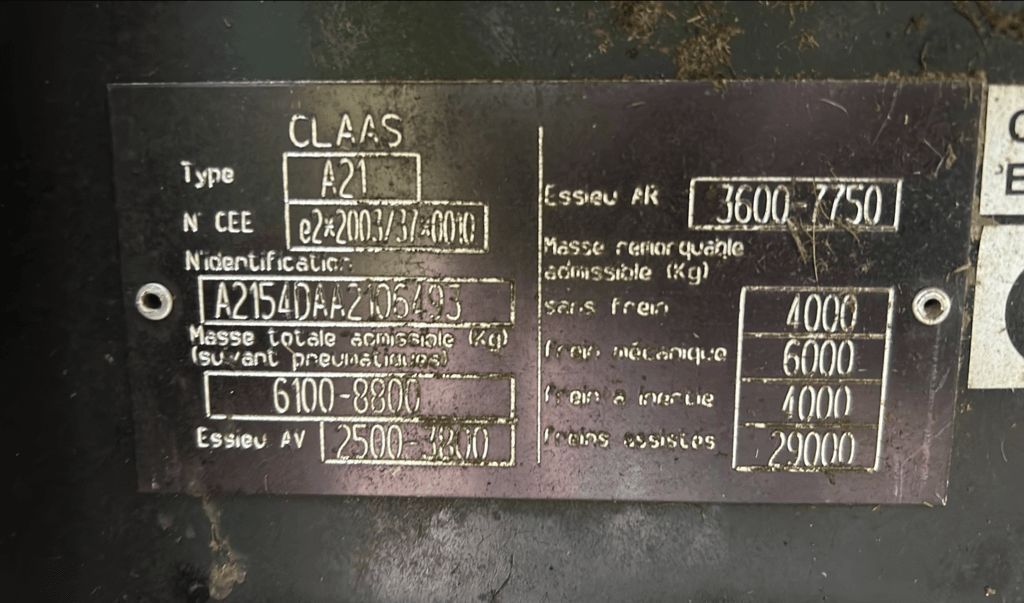 CLAAS
Type A21
N° CEE e2*2003/37*0010
N°identification
A2154DAA2106493
Masse totale admissible (Kg)
(suivant pneumatiques)
6100-8800
Essieu AV 2500-3800
Essieu AR 3600-7750
Masse remorquable
admissible (Kg)
sans frein 4000
frein mécanique 6000
frein a inertie 4000
freins assistes 29000